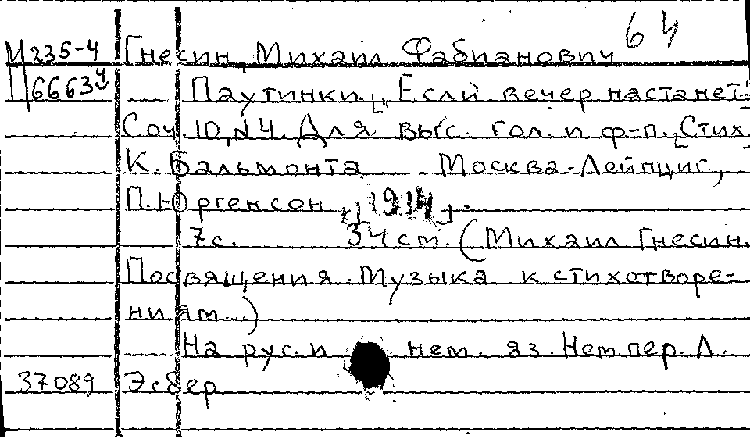 64
М335-4 Гнесин, Михаил Фабианович
П6663 Паутинки. [„Если вечер настанет".
Соч. 10, №4. Для выс. гол. и ф-п. [Стих.
К. Бальмонта Москва-Лейпциг,
П. Юргенсон, [1914].
7с. 34 cm. (Михаил Гнесин.
Посвящения. Музыка к стихотворе-
ниям.)
На рус. и нем. яз. Нем пер. Л.
37089 Эсбер